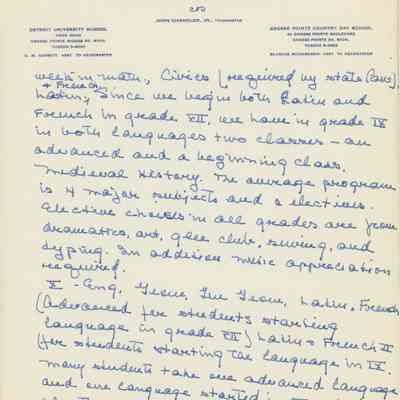 JOHN CHANDLER, JR., HEADMASTER
DETROIT UNIVERSITY SCHOOL
GROSSE POINTE COUNTRY DAY SCHOOL
GROSSE POINTE WOODS 30, MICH.
GROSSE POINTE 30, MICH.
week in math, Civics (required by state laws),
+ French
Latin, Since we begin both Latin and
French in grade VII, we have in grade IX
in both languages two classes - an
advanced and a beginning class.
Medieval History. The average program
is 4 major subjects and 2 electives.
Elective choices in all grades are from
dramatics, art, glee club, sewing, and
typing. In addition music appreciation
required.
X - Eng, Geom, Latin, French
(advanced for students starting
language in grade VII) Latin + French II
(for students starting the language in IX.
Many students take one advanced language
and one language started